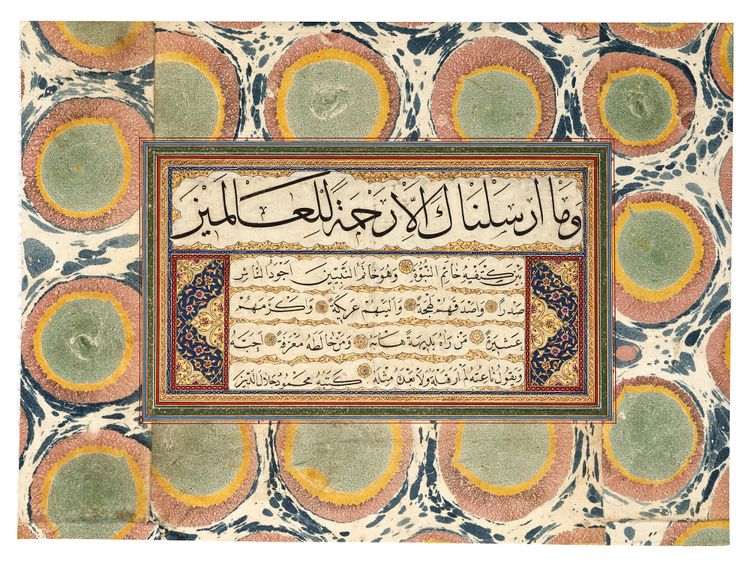 وما ارسلناك الا رحمة للعالمين
بين كتفيه خاتم النبوة وهو خاتم النبيين اجود الناس
صدرا واصدقهم لهجة والينهم عريكة واكرمهم
عشيرة من رآه بديهة هابه ومن خالطه معرفة احبه
ويقول ناعته لم ار قبله ولا بعده مثله كتبه محمود جلال الدين